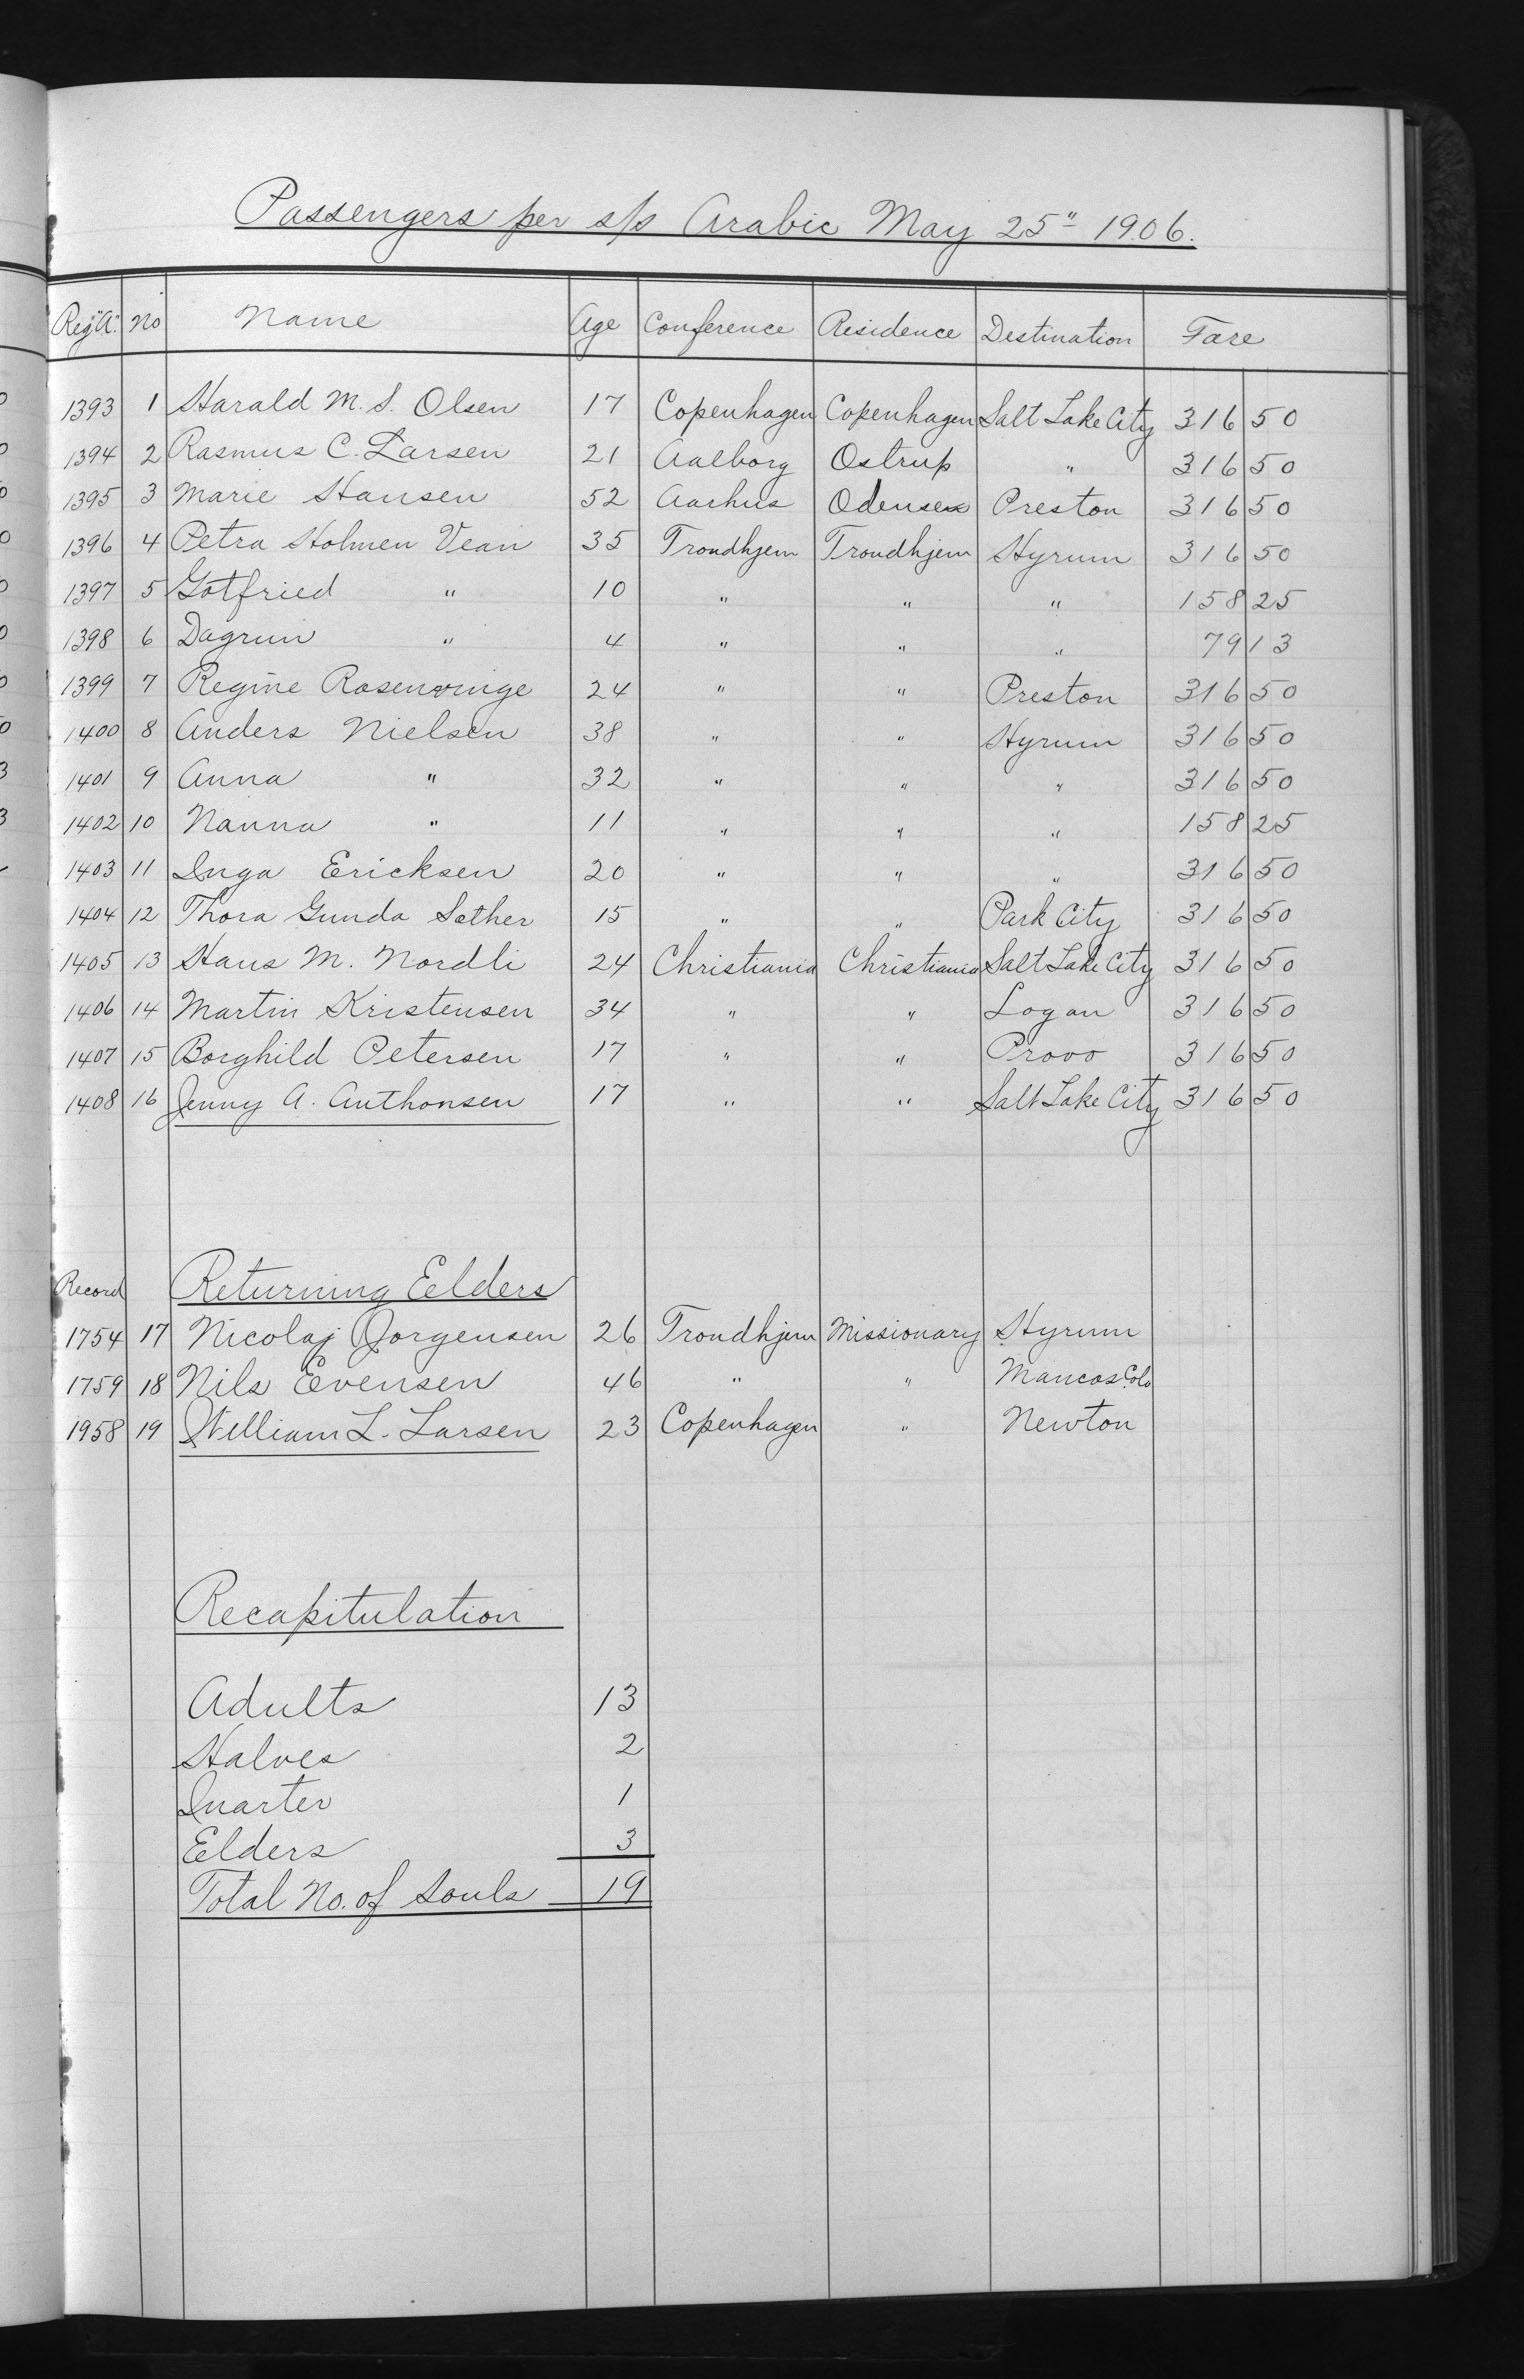 Passengers per s/s Arabic May 25" 1906.
Reg "A". No Name Age Conference Residence Destination Fare
1393 1 Harald M. S. Olsen 17 Copenhagen Copenhagen Salt Lake City 316 50
1394 2 Rasmus C. Larsen 21 Aalborg Ostrup " 316 50
1395 3 Marie Hansen 52 Aarhus Odense Preston 316 50
1396 4 Petra Holmen Vean 35 Trondhjem Trondhjem Hyrum 316 50
1397 5 Gotfried " 10 " " " 158 25
1398 6 Dagrun " 4 " " " 79 13
1399 7 Regine Rosenvinge 24 " " Preston 316 50
1400 8 Anders Nielsen 38 " " Hyrum 316 50
1401 9 Anna " 32 " " " 316 50
1402 10 Nanna " 11 " " " 158 25
1403 11 Inga Ericksen 20 " " " 316 50
1404 12 Thora Gunda Sether 15 " " Park City 316 50
1405 13 Hans M. Nordli 24 Christiania Christiania Salt Lake City 316 50
1406 14 Martin Kristensen 34 " " Logan 316 50
1407 15 Borghild Petersen 17 " " Provo 316 50
1408 16 Jenny A. Anthonsen 17 " " Salt Lake City 316 50
Record Returning Eelders
1754 17 Nicolaj Jorgensen 26 Trondhjem Missionary Hyrum
1759 18 Nils Evensen 46 " " Mancos Colo
1958 19 William L. Larsen 23 Copenhagen " Newton
Recapitulation
Adults 13
Halves 2
Quarter 1
Elders 3
Total No. of Souls 19